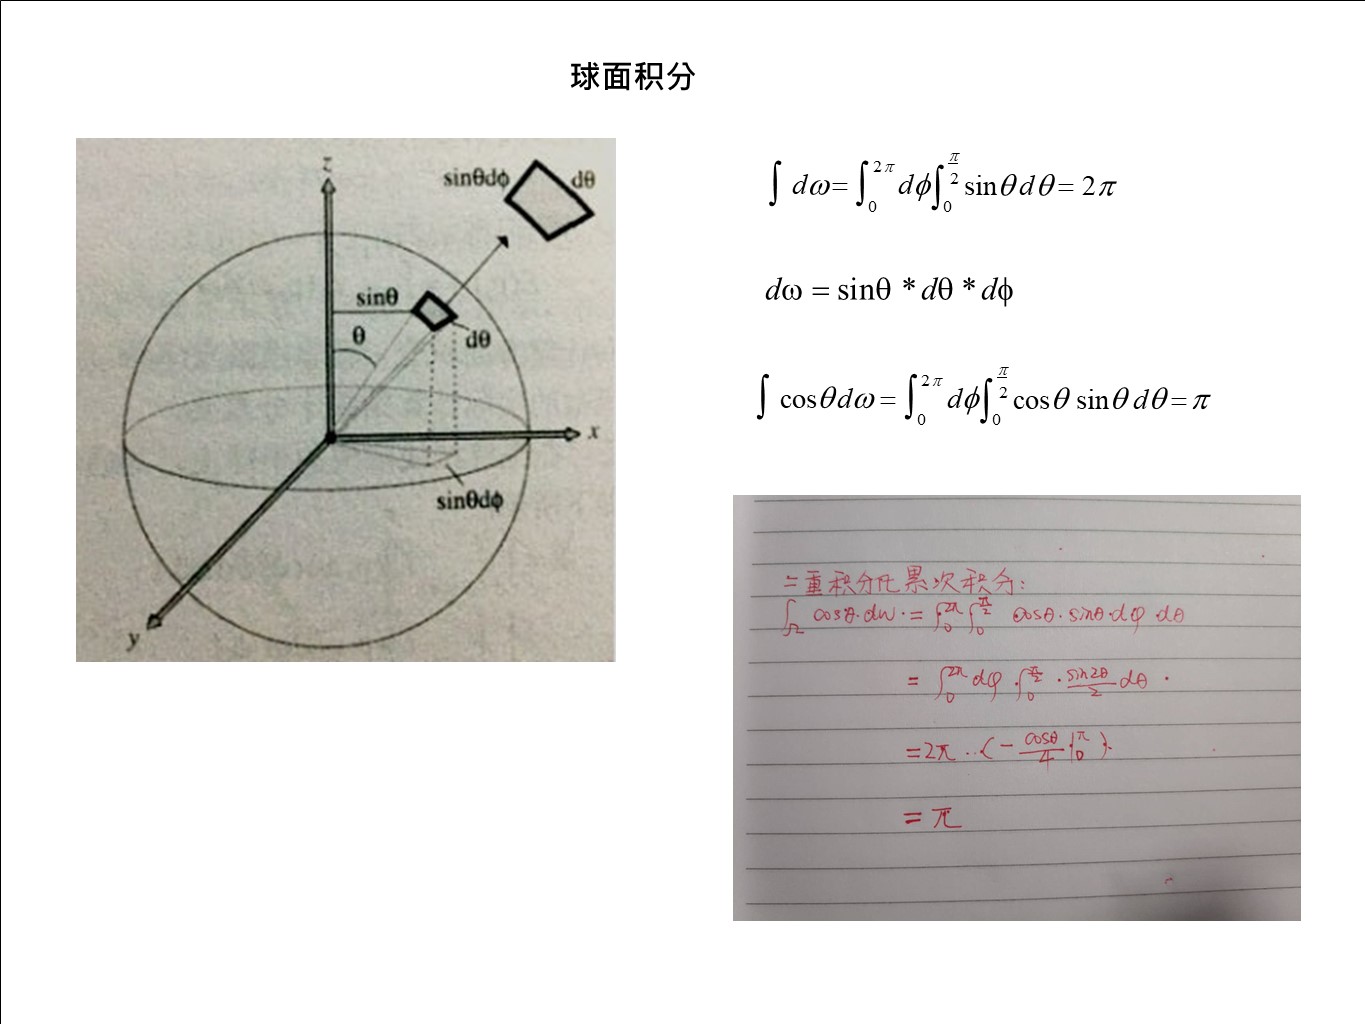 球面积分
z
sinθdϕ
dθ
sinθ
θ
dθ
x
sinθdϕ
y
∫ dω = ∫₀^{2π} dϕ ∫₀^{π/2} sinθ dθ = 2π
dω = sinθ * dθ * dϕ
∫ cosθ dω = ∫₀^{2π} dϕ ∫₀^{π/2} cosθ sinθ dθ = π
二重积分化累次积分:
∫_Ω cosθ·dω· = ∫₀^{2π} ∫₀^{π/2} cosθ·sinθ·dφ·dθ
= ∫₀^{2π} dφ · ∫₀^{π/2} · sin2θ/2 dθ ·
= 2π ··(- cosθ/4 |₀^π).
= π